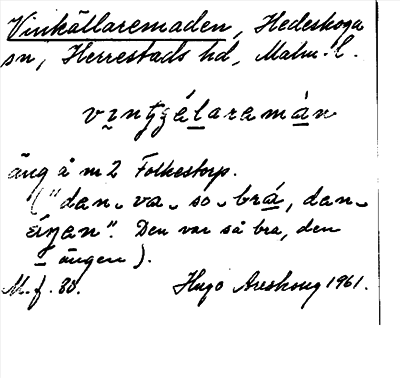 Vinkällaremaden, Hedeskoga
sn, Herrestads hd, Malm. l.
vɪntʒélaremán
äng å nr 2 Folkestorp.
("dan va so brá, dan
éŋan". Den var så bra, den
ängen).
M. f. 80. Hugo Areskoug 1961.